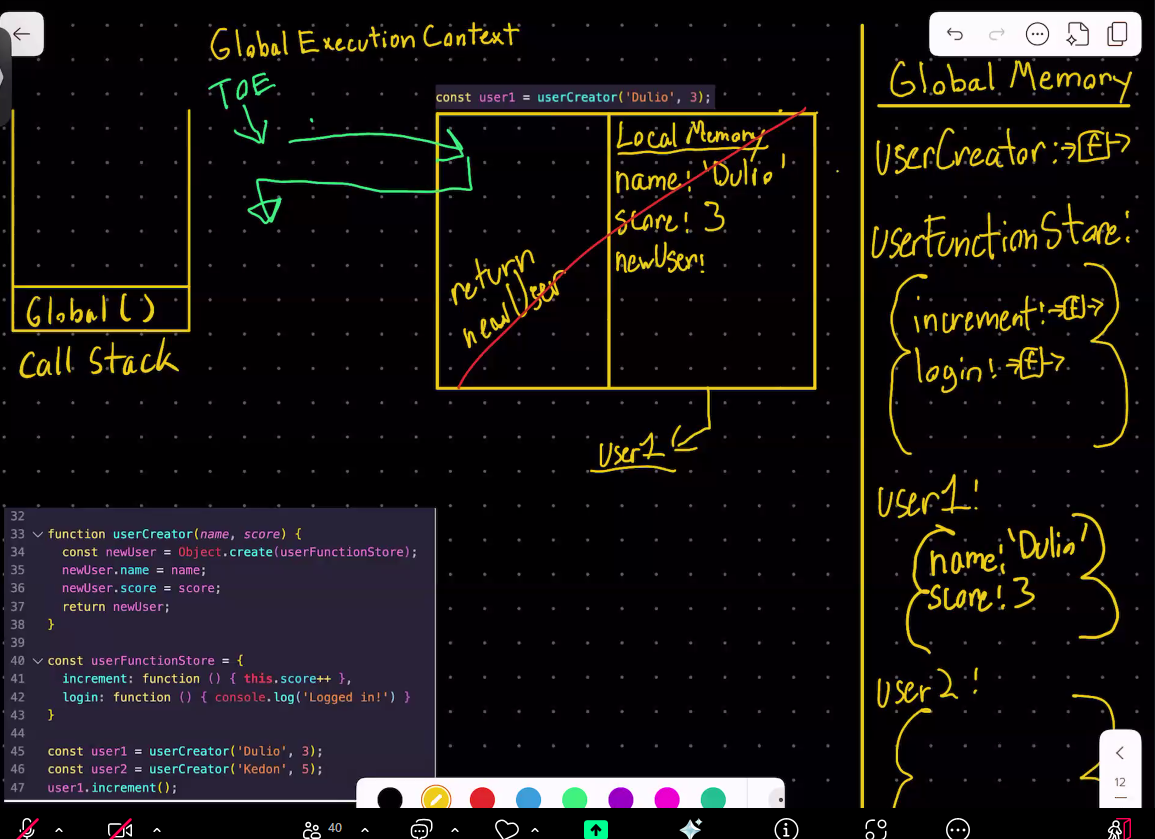 Global Execution Context
TOE
const user1 = userCreator('Dulio', 3);
Local Memory
name: 'Dulio'
score: 3
newUser:
return
newUser
user1
Global()
Call Stack
Global Memory
userCreator: →[f]→
userFunctionStore:
{
increment: →[f]→
login: →[f]→
}
user1:
{
name: 'Dulio'
score: 3
}
user2:
{
32
33 function userCreator(name, score) {
34 const newUser = Object.create(userFunctionStore);
35 newUser.name = name;
36 newUser.score = score;
37 return newUser;
38 }
39
40 const userFunctionStore = {
41 increment: function () { this.score++ },
42 login: function () { console.log('Logged in!') }
43 }
44
45 const user1 = userCreator('Dulio', 3);
46 const user2 = userCreator('Kedon', 5);
47 user1.increment();
12
40